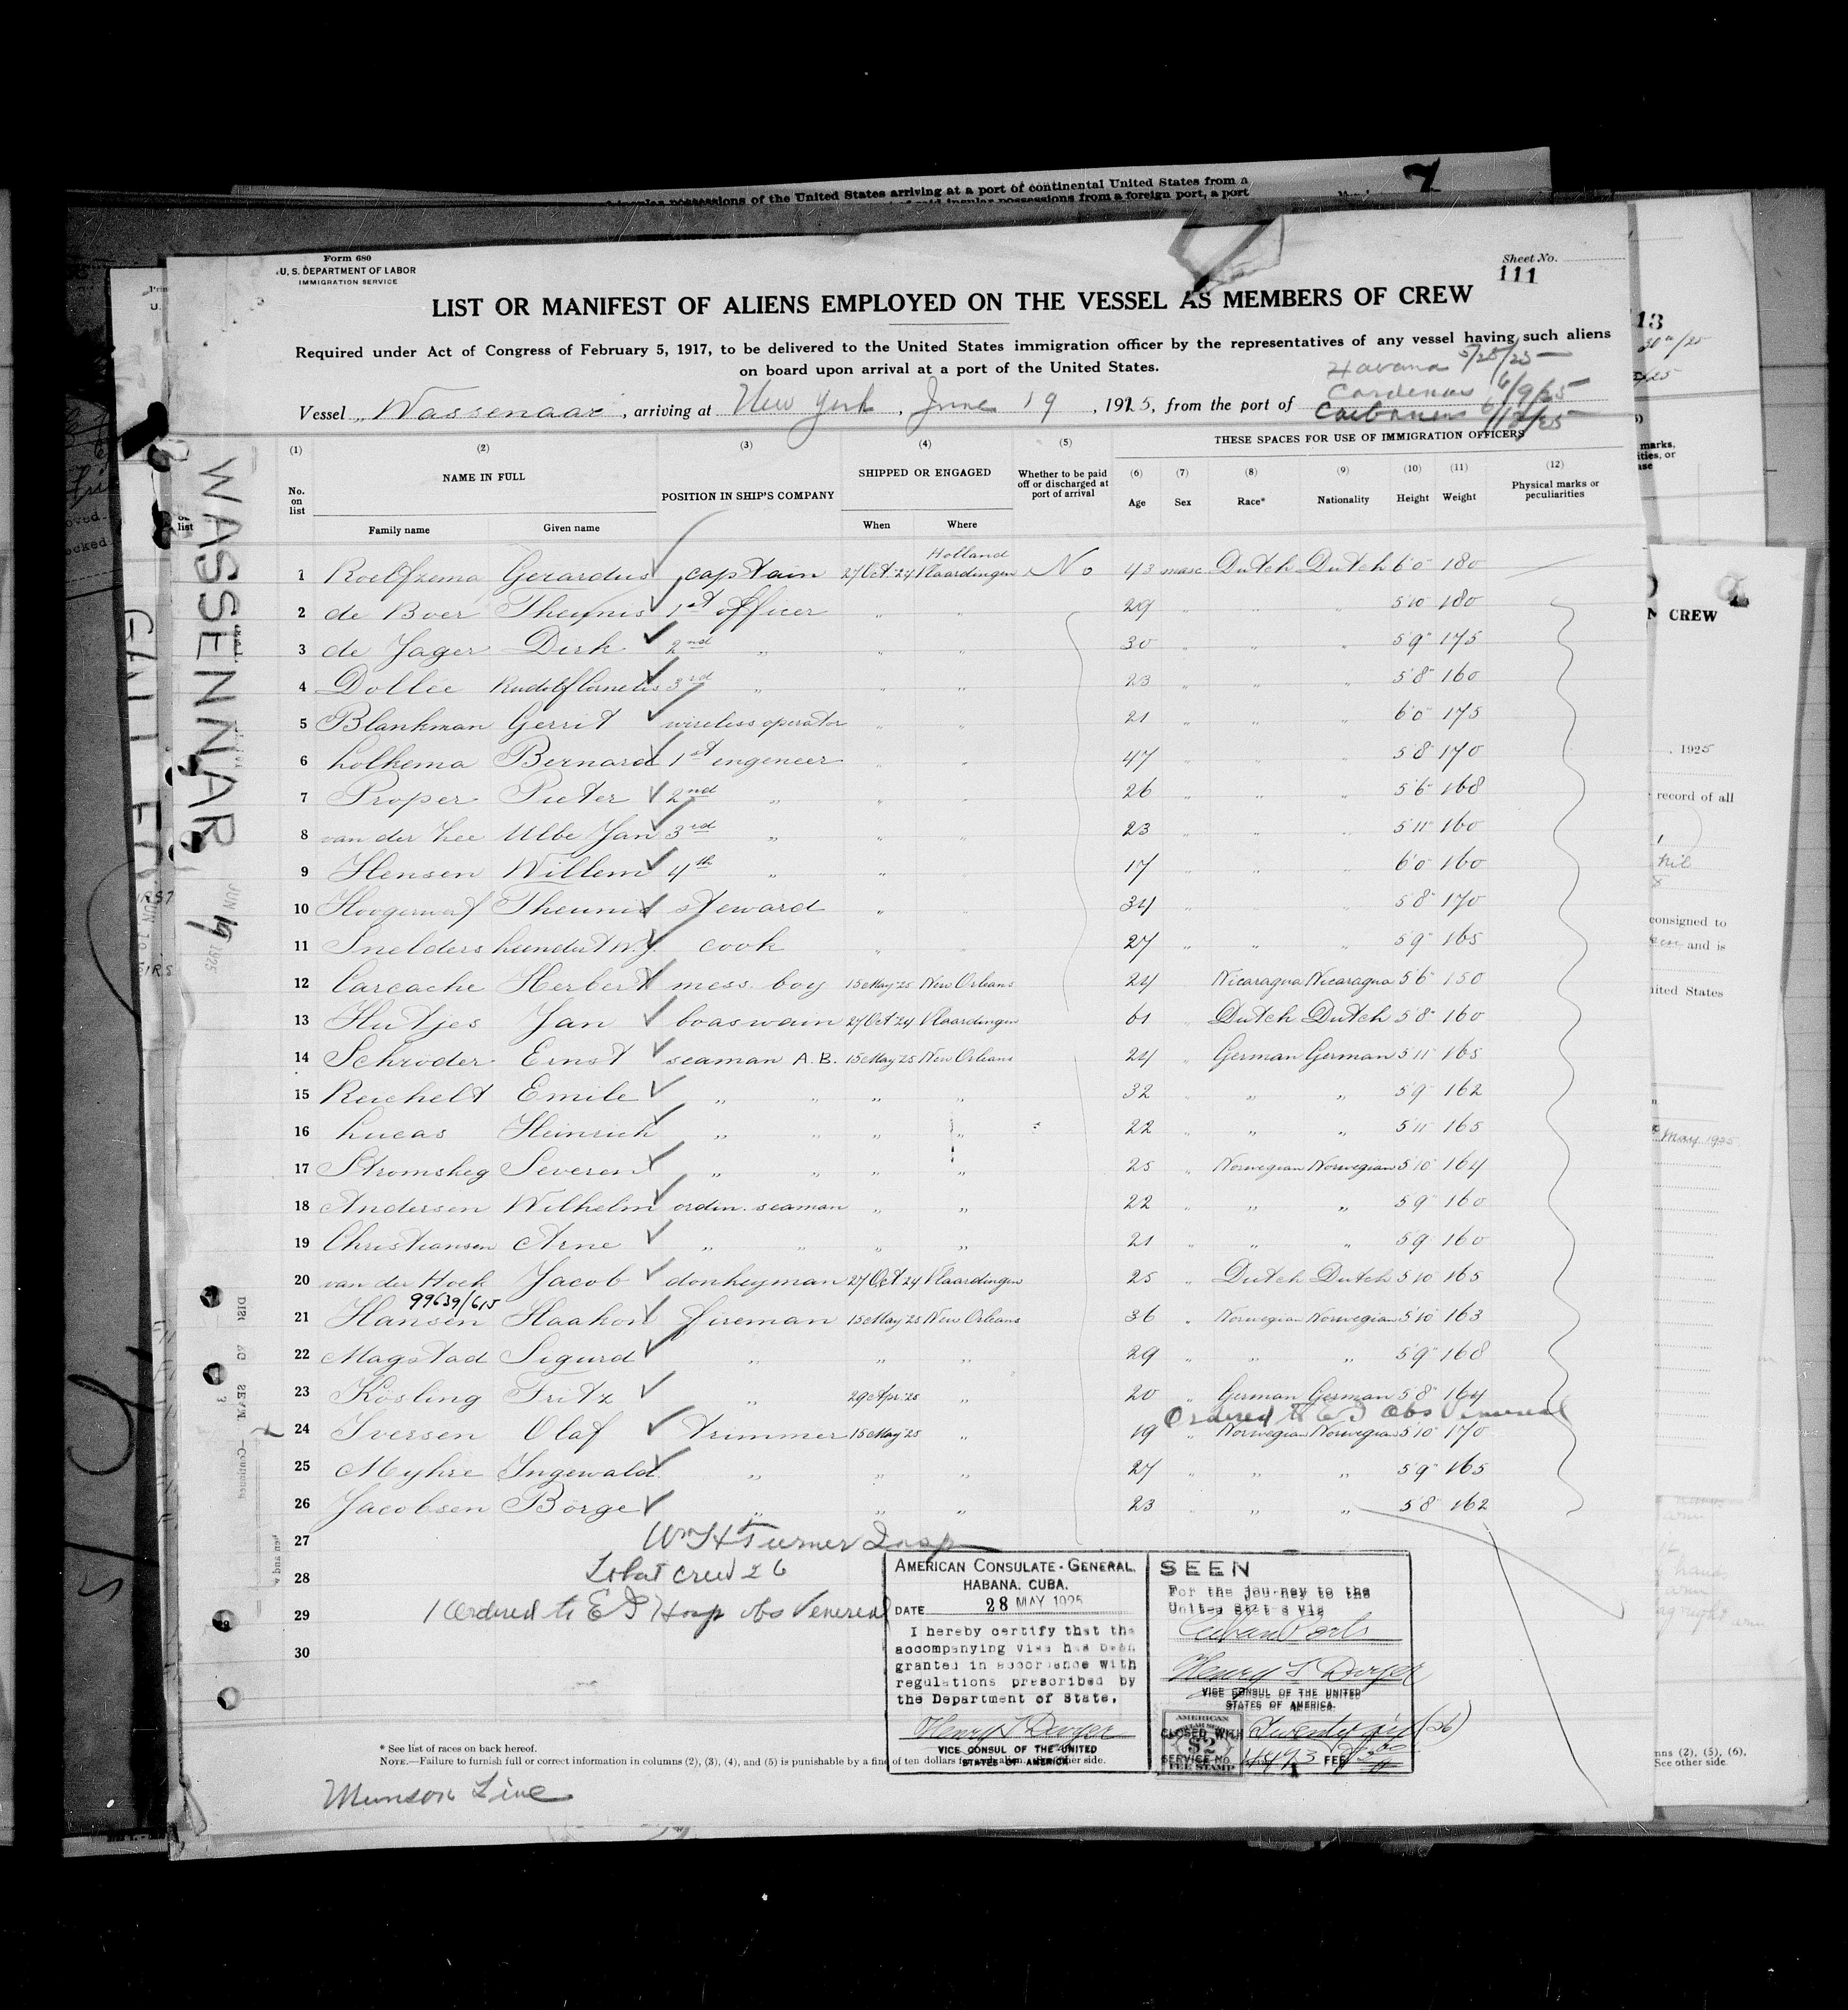 insular possessions of the United States arriving at a port of continental United States from a
7
Form 680
U. S. DEPARTMENT OF LABOR
IMMIGRATION SERVICE
Sheet No.
111
LIST OR MANIFEST OF ALIENS EMPLOYED ON THE VESSEL AS MEMBERS OF CREW
Required under Act of Congress of February 5, 1917, to be delivered to the United States immigration officer by the representatives of any vessel having such aliens
on board upon arrival at a port of the United States.
Havana 5/28/25
Cardenas 6/9/25
Vessel „Wassenaar", arriving at New York, June 19, 1925, from the port of Caibarien 6/12/25
THESE SPACES FOR USE OF IMMIGRATION OFFICERS
(1) (2) (3) (4) (5) (6) (7) (8) (9) (10) (11) (12)
No. on list NAME IN FULL POSITION IN SHIP'S COMPANY SHIPPED OR ENGAGED Whether to be paid off or discharged at port of arrival Age Sex Race* Nationality Height Weight Physical marks or peculiarities
Family name Given name When Where
Holland
1 Roelfzema Gerardus captain 27 Oct '24 Vlaardingen No 43 masc. Dutch Dutch 6'0" 180
2 de Boer Theunis 1st officer „ „ 29 „ „ „ 5'10" 180
3 de Jager Dirk 2nd „ „ „ 30 „ „ „ 5'9" 175
4 Dollée Rudolf Cornelis 3rd „ „ „ 23 „ „ „ 5'8" 160
5 Blankman Gerrit wireless operator „ „ 21 „ „ „ 6'0" 175
6 Lolkema Bernard 1st engeneer „ „ 47 „ „ „ 5'8" 170
7 Proper Pieter 2nd „ „ „ 26 „ „ „ 5'6" 168
8 van der Zee Ulbe Jan 3rd „ „ „ 23 „ „ „ 5'11" 160
9 Hensen Willem 4th „ „ „ 17 „ „ „ 6'0" 160
10 Hoogerwerf Theunis steward „ „ 34 „ „ „ 5'8" 170
11 Snelders Leendert W.J. cook „ „ 27 „ „ „ 5'9" 165
12 Carcache Herbert mess boy 15 May '25 New Orleans 24 Nicaragua Nicaragua 5'6" 150
13 Hutjes Jan boaswain 27 Oct '24 Vlaardingen 61 „ Dutch Dutch 5'8" 160
14 Schroder Ernst seaman A.B. 15 May '25 New Orleans 24 „ German German 5'11" 165
15 Reichelt Emile „ „ „ „ 32 „ „ „ 5'9" 162
16 Lucas Heinrich „ „ „ „ 22 „ „ „ 5'11" 165
17 Stromsheg Severen „ „ „ „ 25 „ Norwegian Norwegian 5'10" 164
18 Andersen Wilhelm ordin. seaman „ „ 22 „ „ „ 5'9" 160
19 Christiansen Arne „ „ „ „ 21 „ „ „ 5'9" 160
20 van der Hoek Jacob donkeyman 27 Oct '24 Vlaardingen 25 „ Dutch Dutch 5'10" 165
99639/615
21 Hansen Haakon fireman 15 May '25 New Orleans 36 „ Norwegian Norwegian 5'10" 163
22 Magstad Sigurd „ „ „ 29 „ „ „ 5'9" 168
23 Kosling Fritz „ 29 Apr. '25 „ 20 „ German German 5'8" 164
Ordered to E I obs Venereal
24 Iversen Olaf trimmer 15 May '25 „ 19 „ Norwegian Norwegian 5'10" 170
25 Myhre Ingewald „ „ „ 27 „ „ „ 5'9" 165
26 Jacobsen Börge „ „ „ 23 „ „ 5'8" 162
27 Wm H Turner Insp
28 Total crew 26
29 1 Ordered to E I Hosp obs Venereal
30
AMERICAN CONSULATE-GENERAL.
HABANA, CUBA.
DATE 28 MAY 1925
I hereby certify that the
accompanying visa has been
granted in accordance with
regulations prescribed by
the Department of State.
VICE CONSUL OF THE UNITED
STATES OF AMERICA
SEEN
For the journey to the
United States via
Cuban Ports
VICE CONSUL OF THE UNITED
STATES OF AMERICA.
CLOSED WITH Twenty six (26)
SERVICE No. FEE
AMERICAN
$2
FEE STAMP
* See list of races on back hereof.
NOTE.—Failure to furnish full or correct information in columns (2), (3), (4), and (5) is punishable by a fine of ten dollars for each alien. See other side.
Munson Line
WASSENNAR
JUN 19 1925
13
CREW
1925
record of all
consigned to
and is
United States
May 1925
(2), (5), (6),
See other side